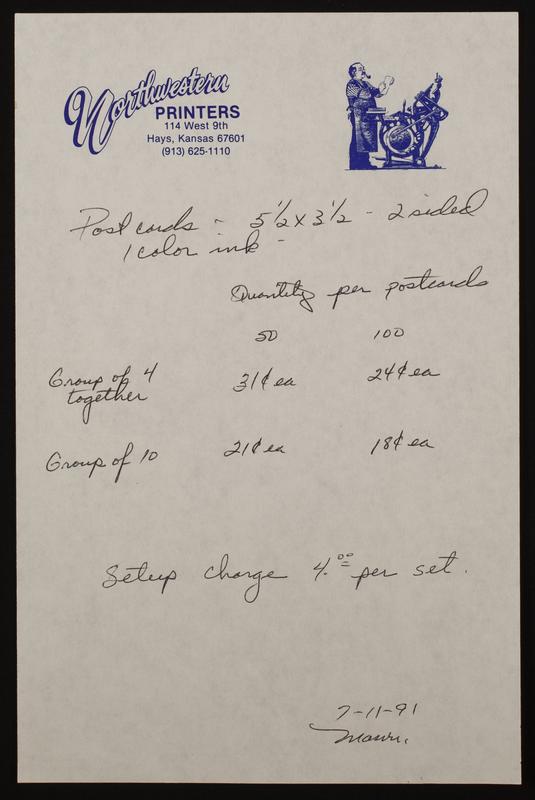 Northwestern
PRINTERS
114 West 9th
Hays, Kansas 67601
(913) 625-1110
Post cards - 5 1/2 x 3 1/2 - 2 sided
1 color ink -
Quantity per postcards
50 100
Group of 4 31¢ ea 24¢ ea
together
Group of 10 21¢ ea 18¢ ea
Setup charge 4.00 per set.
7-11-91